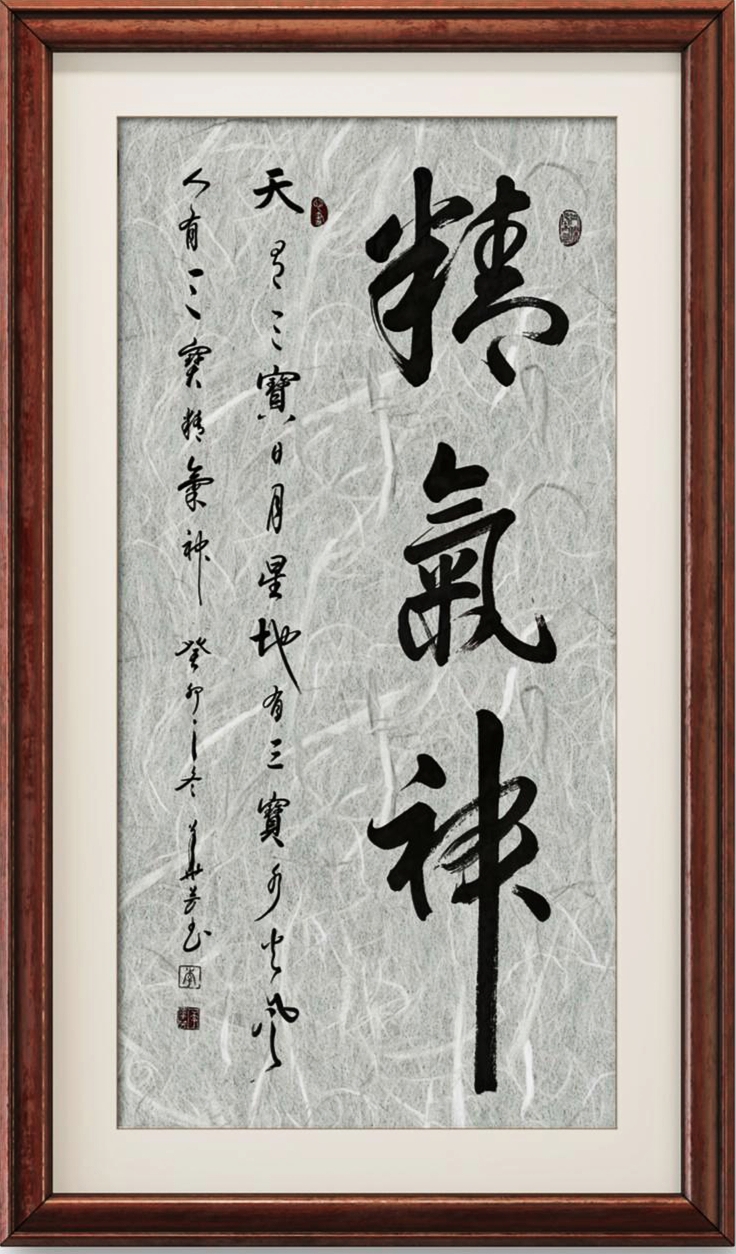 精氣神
天有三寶日月星地有三寶水火風
人有三寶精氣神 癸卯之冬